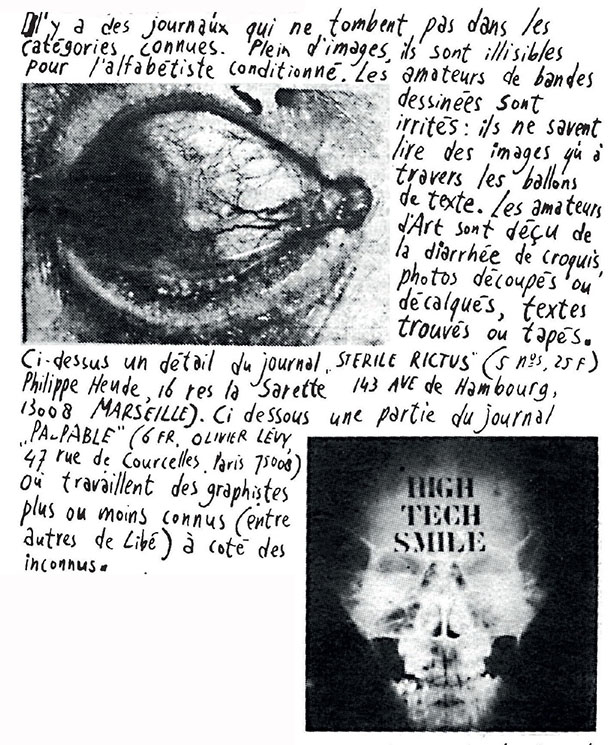 Il y a des journaux qui ne tombent pas dans les
catégories connues. Plein d'images, ils sont illisibles
pour l'alfabétiste conditionné. Les amateurs de bandes
dessinées sont
irrités: ils ne savent
lire des images qu'à
travers les ballons
de texte. Les amateurs
d'Art sont déçu de
la diarrhée de croquis,
photos découpés ou
décalqués, textes
trouvés ou tapés.
Ci-dessus un détail du journal „STERILE RICTUS" (5 nos, 25 F)
Philippe Heude, 16 res la Sarette 143 AVE de Hambourg,
13008 MARSEILLE). Ci dessous une partie du journal
„PALPABLE" (6 FR, OLIVIER LÉVY,
47 rue de Courcelles, Paris 75008)
Où travaillent des graphistes
plus ou moins connus (entre
autres de Libé) à coté des
inconnus.
HIGH
TECH
SMILE